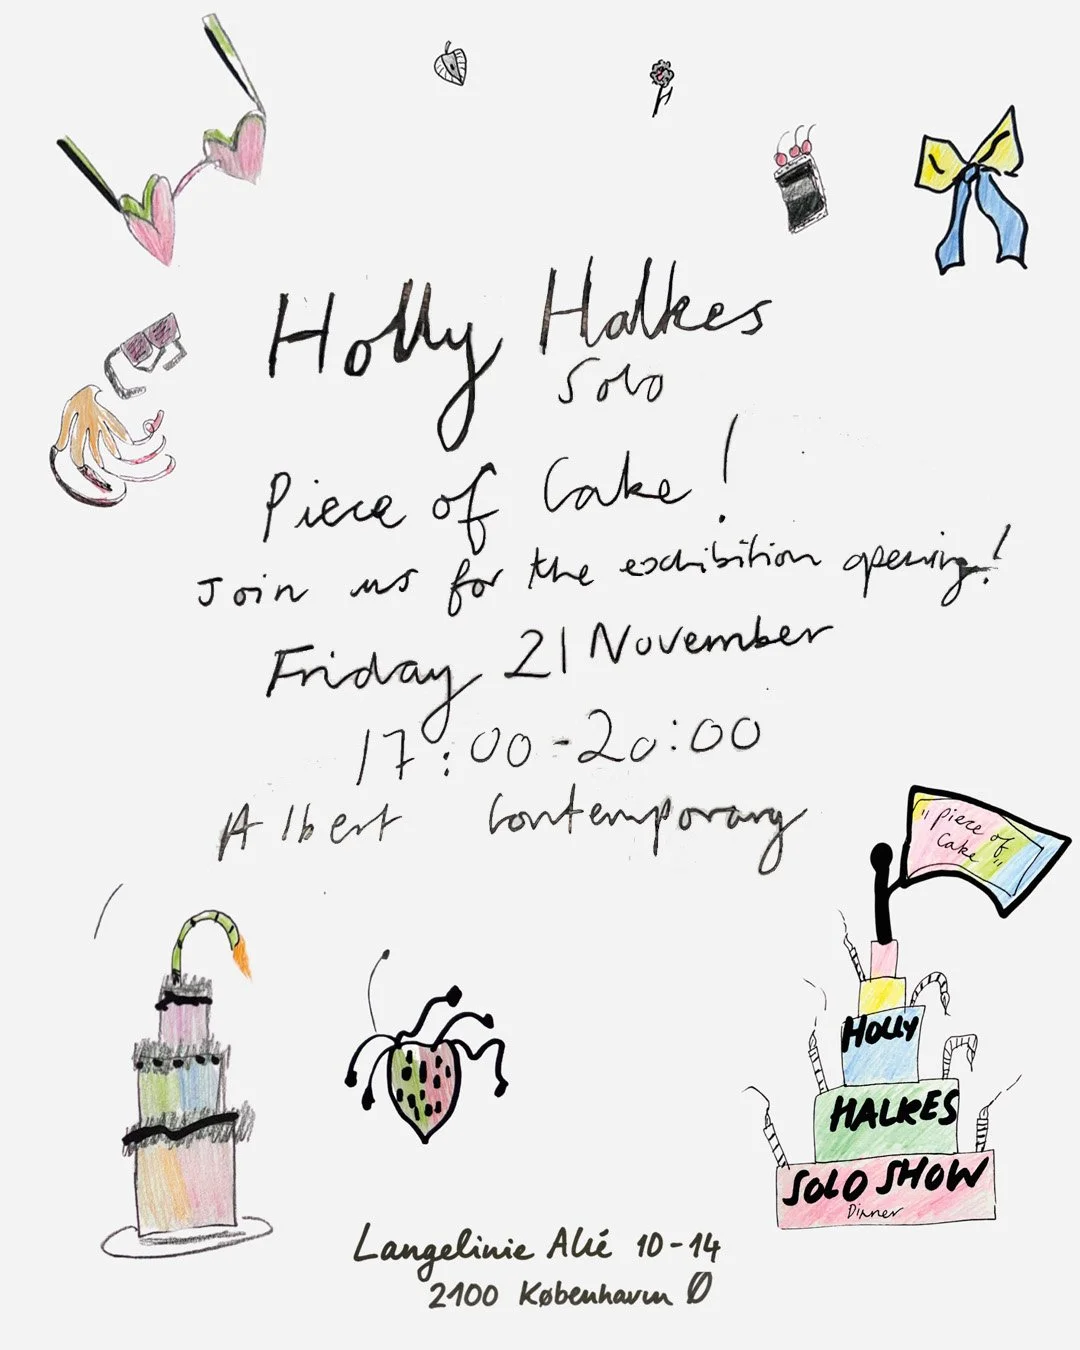 Holly Halkes
Solo
Piece of Cake!
Join us for the exhibition opening!
Friday 21 November
17:00-20:00
Albert Contemporary
"Piece of
Cake"
HOLLY
HALKES
SOLO SHOW
Dinner
Langelinie Allé 10-14
2100 København Ø